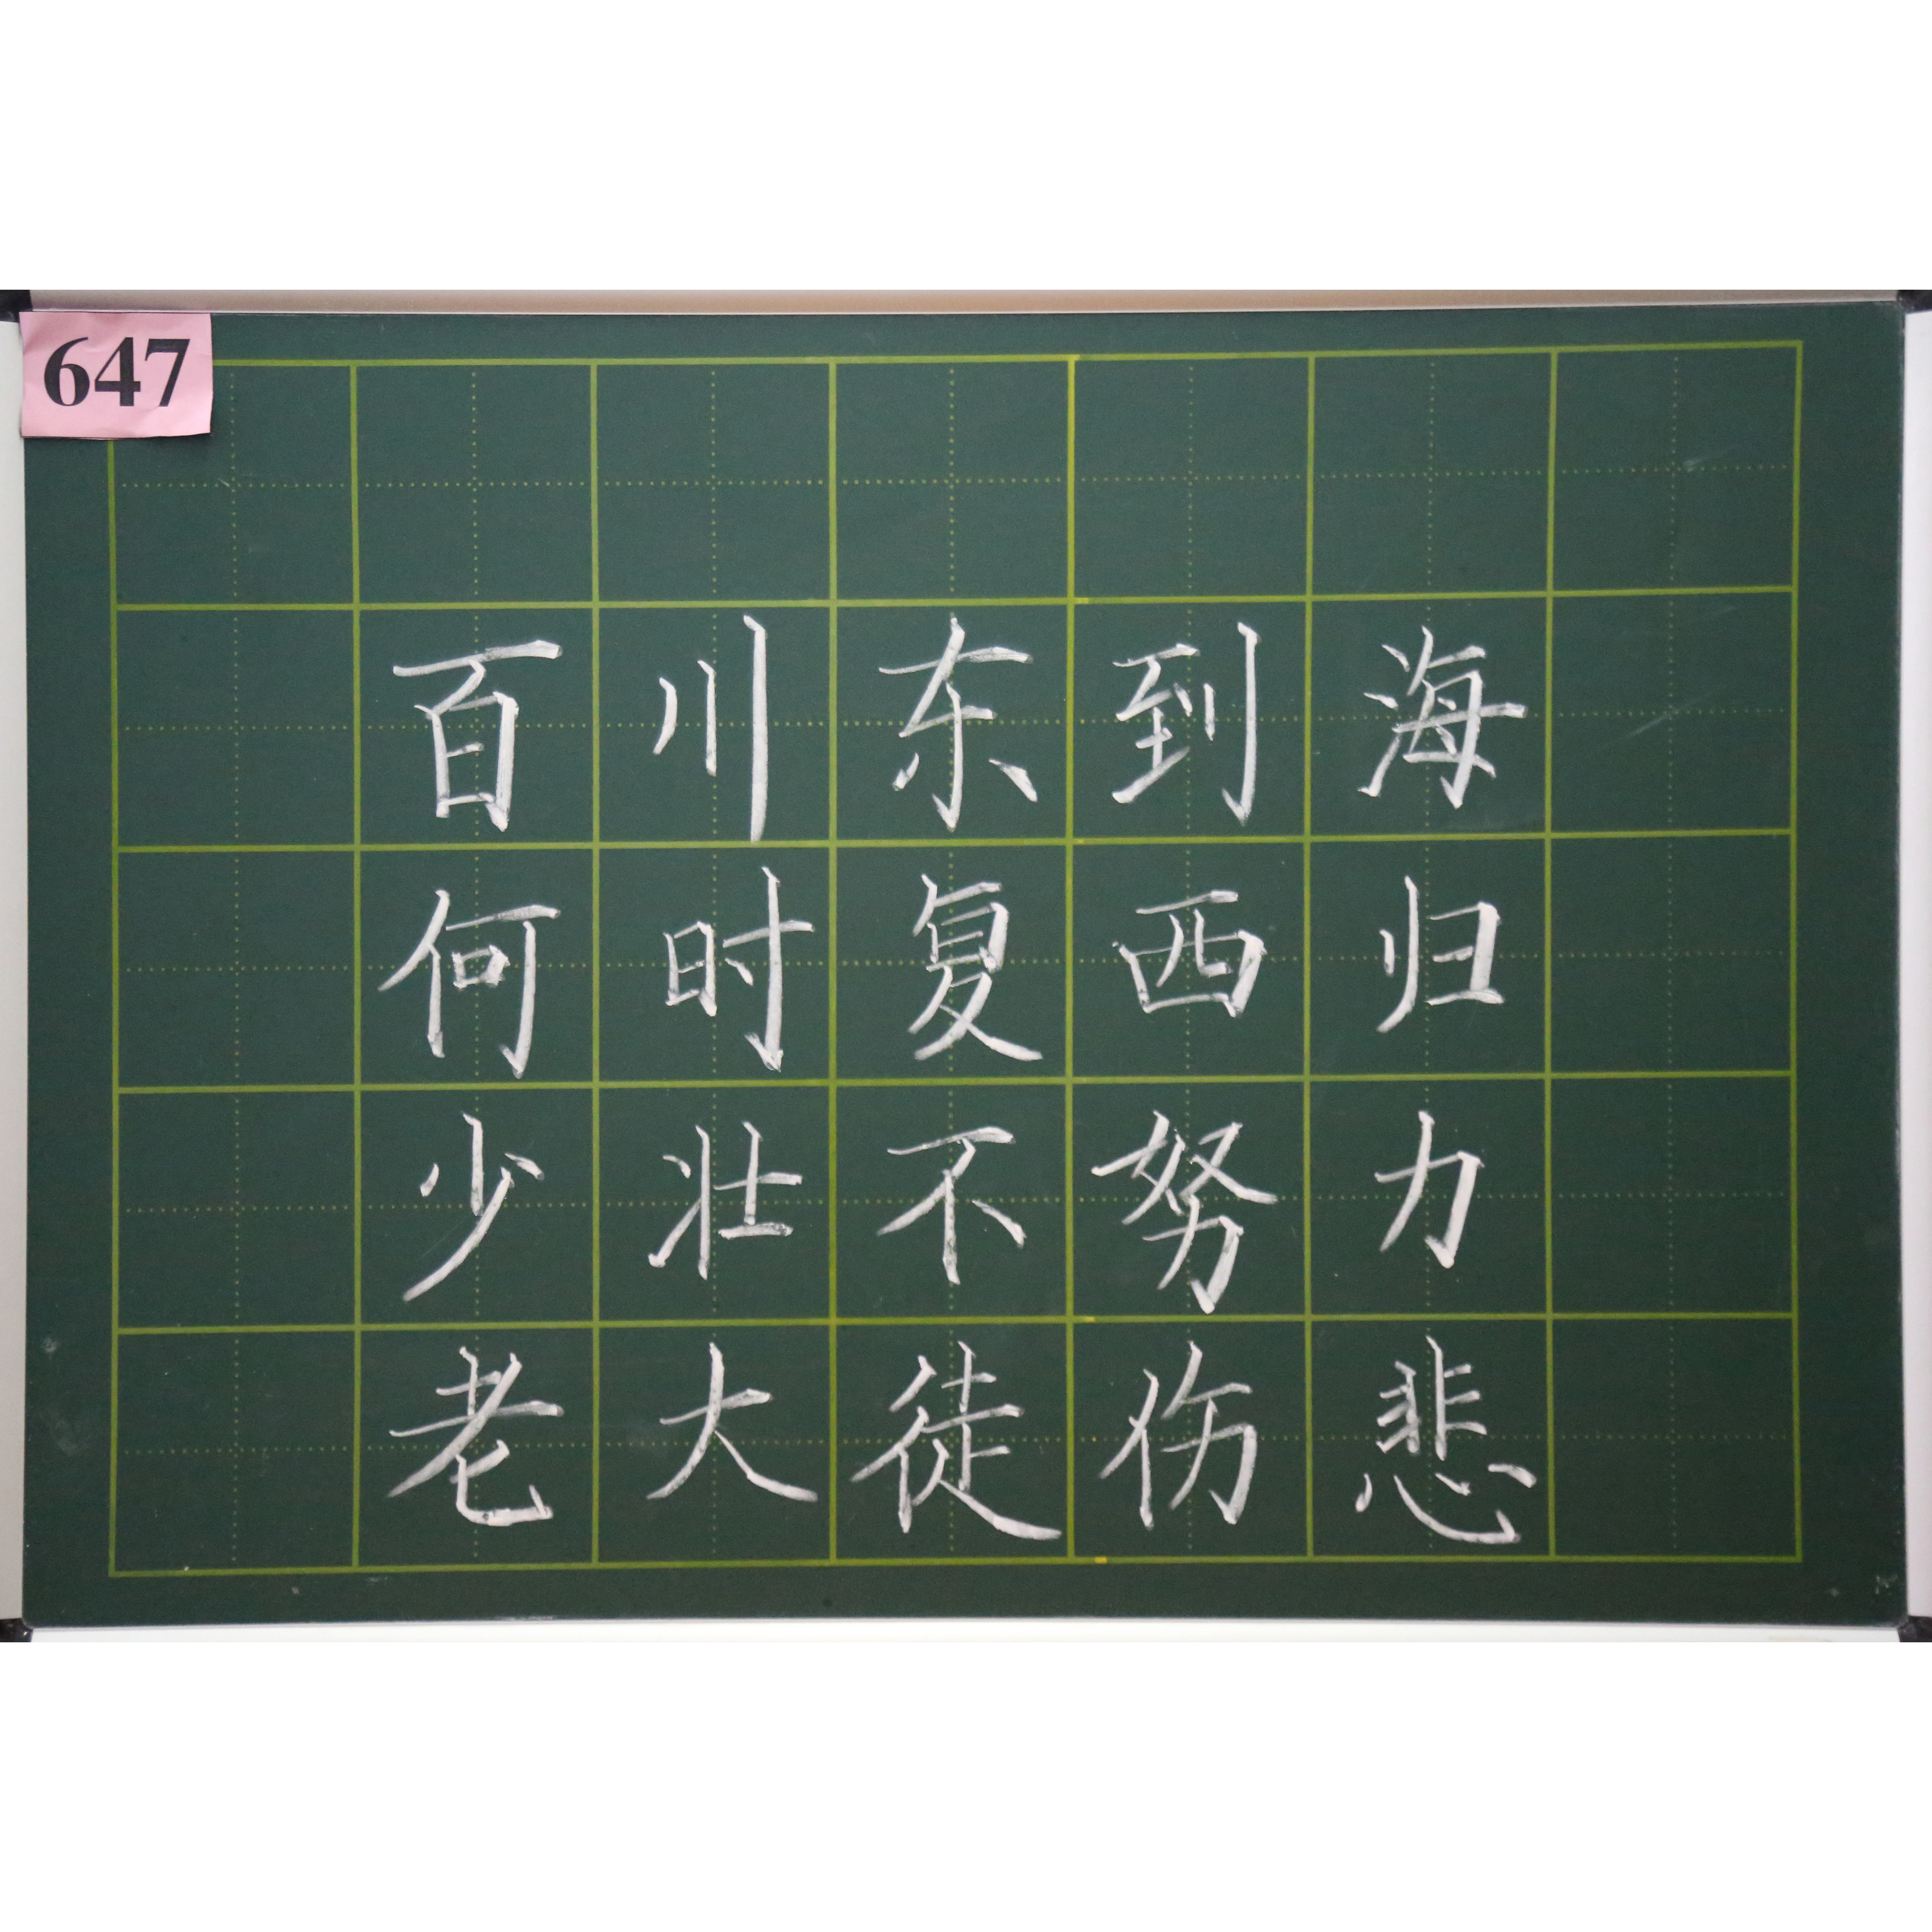 647
百川东到海
何时复西归
少壮不努力
老大徒伤悲